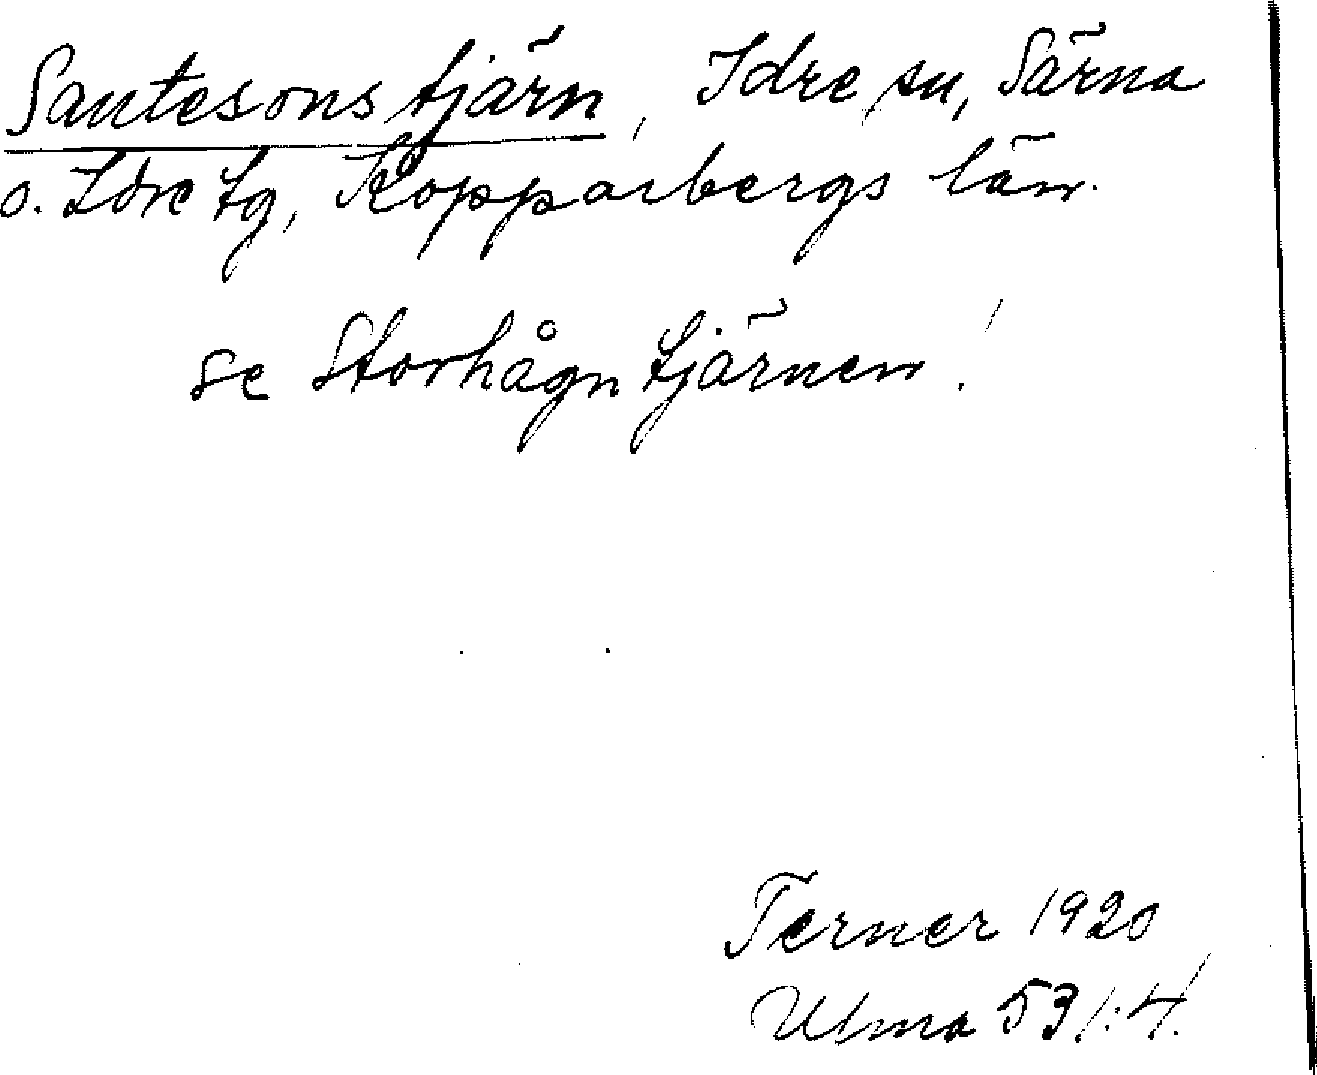 Santesons tjärn, Idre sn, Särna
o. Idre tg, Kopparbergs län.
se Storhågn tjärnen!
Terner 1920
Ulma 53/:4.